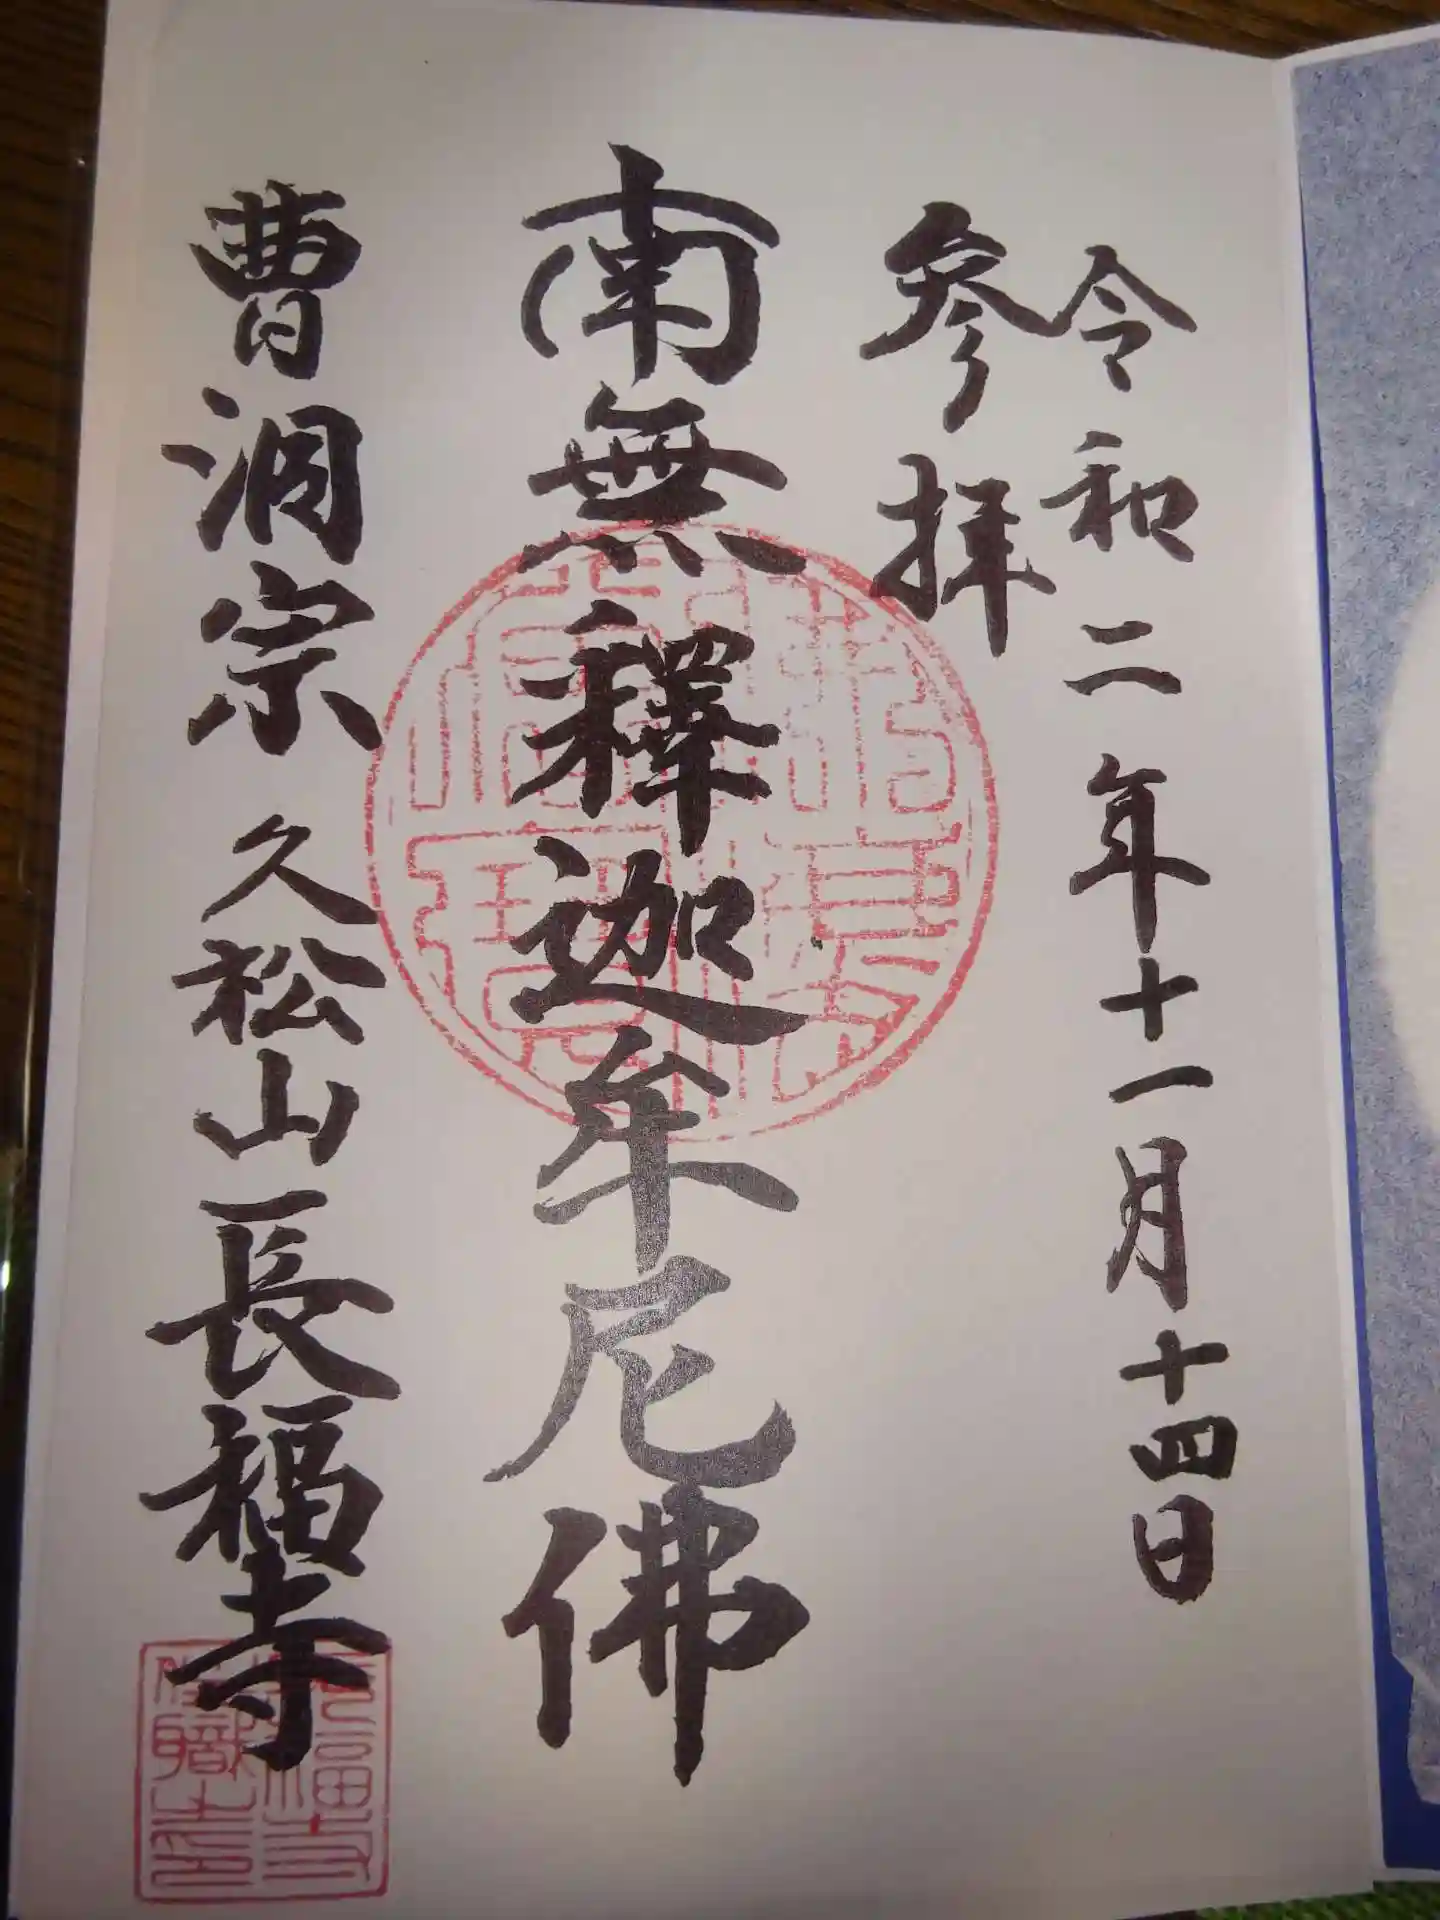 令和二年十一月十四日
參拝
南無釋迦牟尼佛
曹洞宗 久松山長福寺